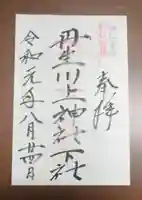 奉拝
丹生川上神社下社
令和元年八月廿四日